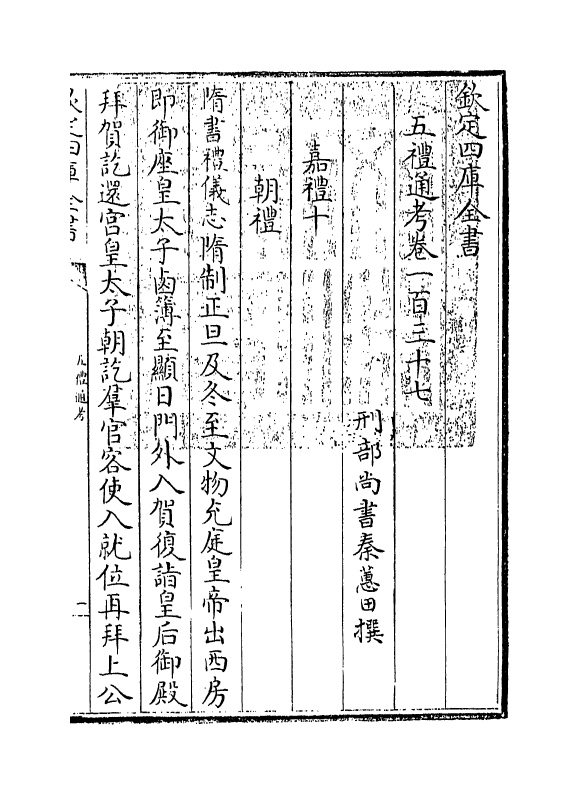 欽定四庫全書
五禮通考卷一百三十七
刑部尚書秦蕙田撰
嘉禮十
朝禮
隋書禮儀志隋制正旦及冬至文物充庭皇帝出西房
即御座皇太子鹵簿至顯日門外入賀復詣皇后御殿
拜賀訖還宮皇太子朝訖羣官客使入就位再拜上公
欽定四庫全書
五禮通考
一